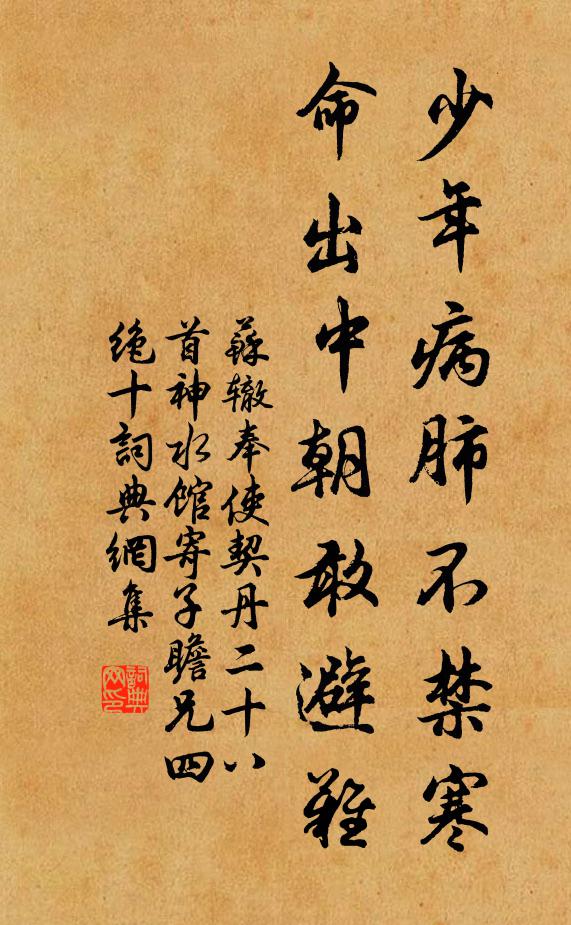 少年病肺不禁寒
命出中朝敢避難
蘇辙奉使契丹二十八
首神水馆寄子瞻兄四
绝十詞典網集
詞典
网印